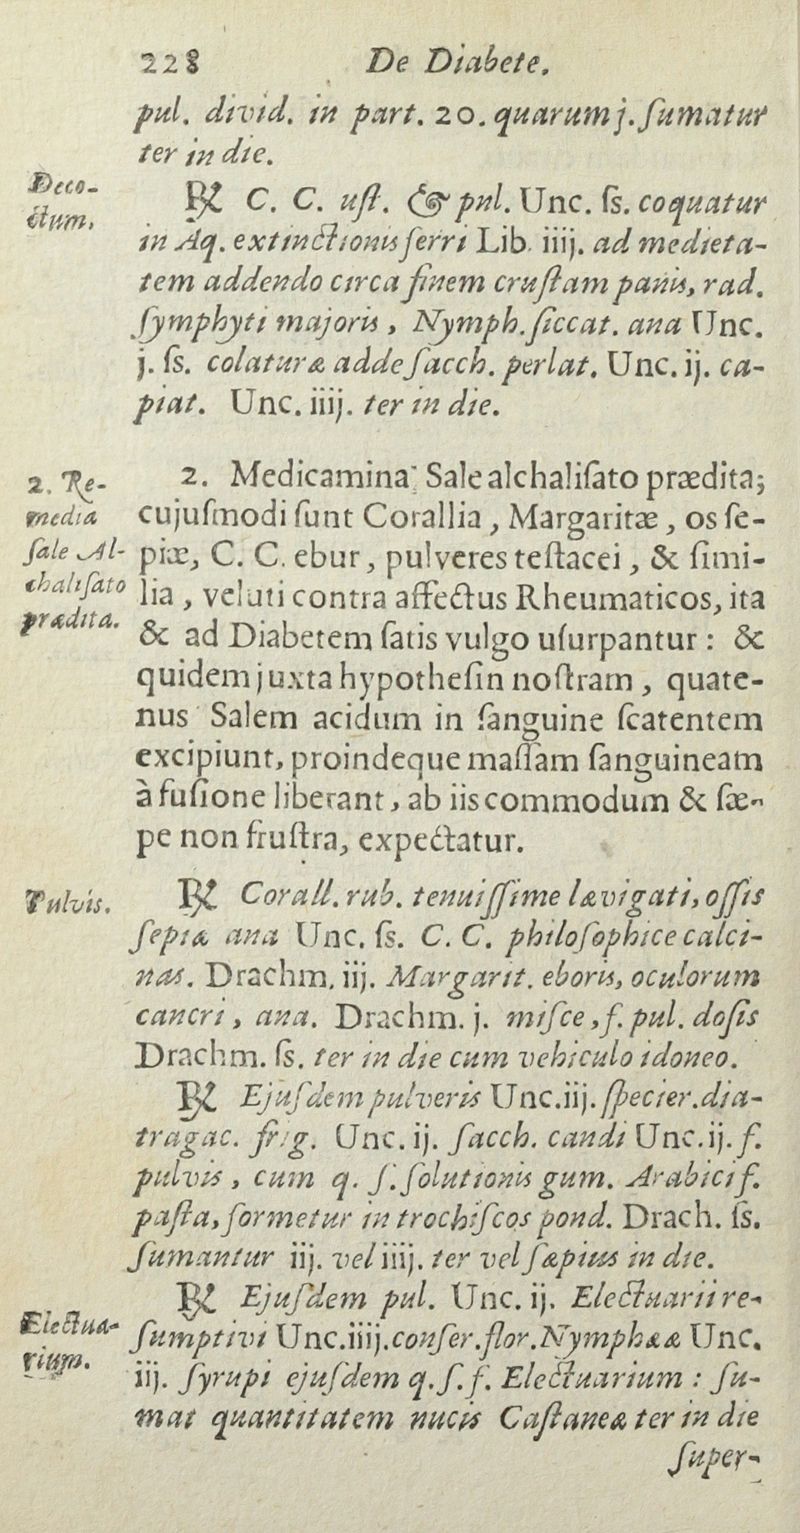 228 De Diabete.
pul. divid. in part. 20. quarum j. ſumatur
ter in die.
Deco-
ctum.
℞ C. C. uſt. & pul. Unc. ſs. coquatur
in Aq. extinctionis ferri Lib. iiij. ad medieta-
tem addendo circa finem cruſtam panis, rad.
ſymphyti majoris, Nymph. ſiccat. ana Unc.
j. ſs. colaturæ adde ſacch. perlat. Unc. ij. ca-
piat. Unc. iiij. ter in die.
2. Re-
media
ſale Al-
chaliſato
prædita.
2. Medicamina Sale alchaliſato prædita;
cujuſmodi ſunt Corallia, Margaritæ, os ſe-
piæ, C. C. ebur, pulveres teſtacei, & ſimi-
lia, veluti contra affectus Rheumaticos, ita
& ad Diabetem ſatis vulgo uſurpantur: &
quidem juxta hypotheſin noſtram, quate-
nus Salem acidum in ſanguine ſcatentem
excipiunt, proindeque maſſam ſanguineam
à fuſione liberant, ab iis commodum & ſæ-
pe non fruſtra, expectatur.
Pulvis.
℞ Corall. rub. tenuiſſime lævigati, oſſis
ſepiæ ana Unc. ſs. C. C. philoſophice calci-
nat. Drachm. iij. Margarit. eboris, oculorum
cancri, ana. Drachm. j. miſce, f. pul. doſis
Drachm. ſs. ter in die cum vehiculo idoneo.
℞ Ejuſdem pulveris Unc. iij. ſpecier. dia-
tragac. frig. Unc. ij. ſacch. candi Unc. ij. f.
pulvis, cum q. ſ. ſolutionis gum. Arabici f.
paſta, formetur in trochiſcos pond. Drach. ſs.
ſumantur iij. vel iiij. ter vel ſæpius in die.
Electua-
rium.
℞ Ejuſdem pul. Unc. ij. Electuarii re-
ſumptivi Unc. iiij. conſer. flor. Nymphææ Unc.
iij. ſyrupi ejuſdem q. ſ. f. Electuarium : ſu-
mat quantitatem nucis Caſtaneæ ter in die
ſuper-